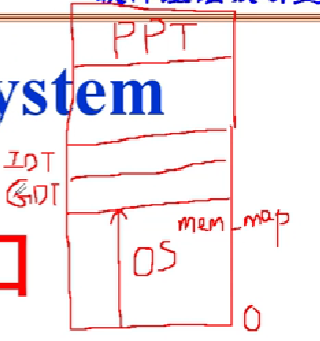 PPT
ystem
IDT
GDT
mem_map
OS
0